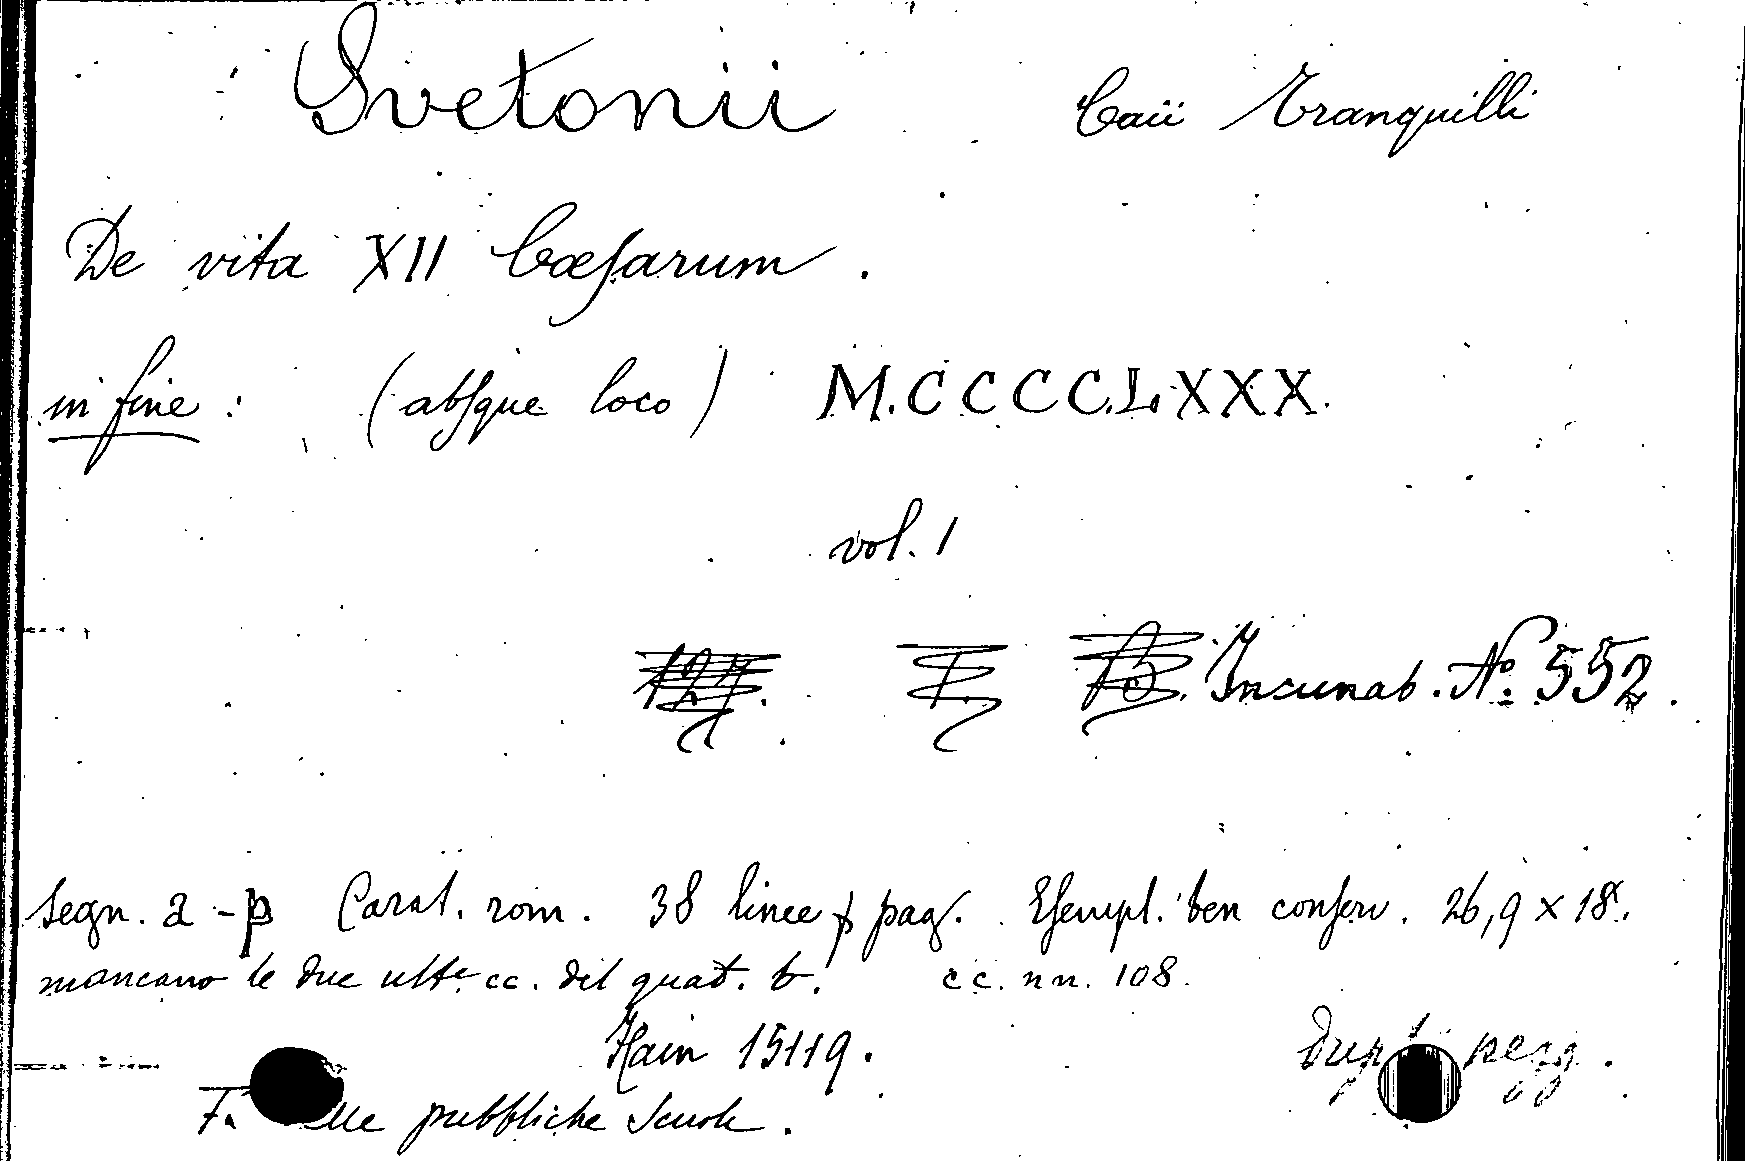 Svetonii Caii Tranquilli
De vita XII Cæsarum.
in fine: (absque loco) M.CCCC.LXXX.
vol. 1
127. I. 13. Incunab. Nº 552.
Segn. a-p Carat. rom. 38 linee p pag. Esempl. ben conserv. 26,9 x 18.
mancano le due ulte cc. del quat. b. cc. nn. 108.
Hain 15119.
pubbliche Scuole.